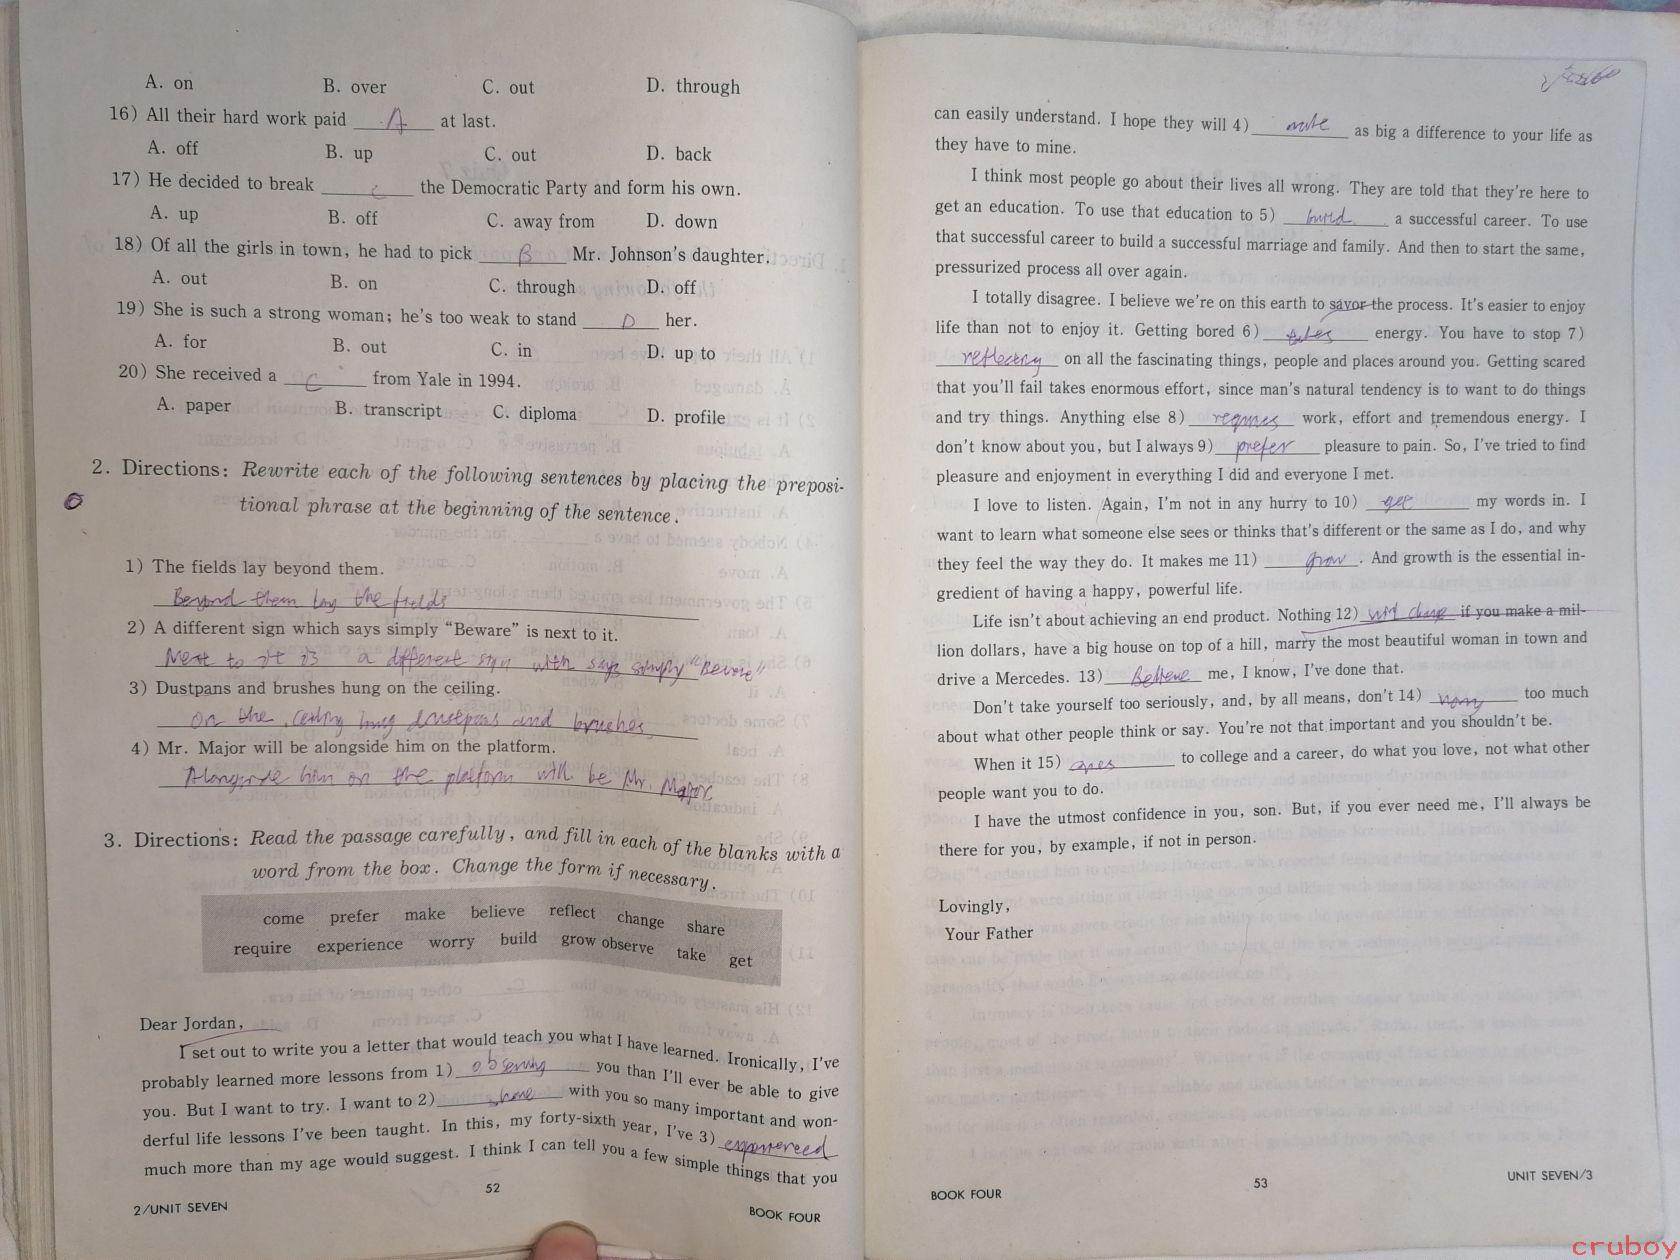 A. on B. over C. out D. through
16) All their hard work paid A at last.
A. off B. up C. out D. back
17) He decided to break c the Democratic Party and form his own.
A. up B. off C. away from D. down
18) Of all the girls in town, he had to pick B Mr. Johnson's daughter.
A. out B. on C. through D. off
19) She is such a strong woman; he's too weak to stand D her.
A. for B. out C. in D. up to
20) She received a C from Yale in 1994.
A. paper B. transcript C. diploma D. profile
2. Directions: Rewrite each of the following sentences by placing the preposi-
tional phrase at the beginning of the sentence.
1) The fields lay beyond them.
Beyond them lay the fields
2) A different sign which says simply "Beware" is next to it.
Next to it is a different sign with says simply "Beware"
3) Dustpans and brushes hung on the ceiling.
on the ceiling hung dustpans and brushes
4) Mr. Major will be alongside him on the platform.
Alongside him on the platform will be Mr. Major
3. Directions: Read the passage carefully, and fill in each of the blanks with a
word from the box. Change the form if necessary.
come prefer make believe reflect change share
require experience worry build grow observe take get
Dear Jordan,
I set out to write you a letter that would teach you what I have learned. Ironically, I've
probably learned more lessons from 1) observing you than I'll ever be able to give
you. But I want to try. I want to 2) share with you so many important and won-
derful life lessons I've been taught. In this, my forty-sixth year, I've 3) experienced
much more than my age would suggest. I think I can tell you a few simple things that you
52
2/UNIT SEVEN
BOOK FOUR
can easily understand. I hope they will 4) make as big a difference to your life as
they have to mine.
I think most people go about their lives all wrong. They are told that they're here to
get an education. To use that education to 5) build a successful career. To use
that successful career to build a successful marriage and family. And then to start the same,
pressurized process all over again.
I totally disagree. I believe we're on this earth to savor the process. It's easier to enjoy
life than not to enjoy it. Getting bored 6) takes energy. You have to stop 7)
reflecting on all the fascinating things, people and places around you. Getting scared
that you'll fail takes enormous effort, since man's natural tendency is to want to do things
and try things. Anything else 8) requires work, effort and tremendous energy. I
don't know about you, but I always 9) prefer pleasure to pain. So, I've tried to find
pleasure and enjoyment in everything I did and everyone I met.
I love to listen. Again, I'm not in any hurry to 10) get my words in. I
want to learn what someone else sees or thinks that's different or the same as I do, and why
they feel the way they do. It makes me 11) grow. And growth is the essential in-
gredient of having a happy, powerful life.
Life isn't about achieving an end product. Nothing 12) will change if you make a mil-
lion dollars, have a big house on top of a hill, marry the most beautiful woman in town and
drive a Mercedes. 13) Believe me, I know, I've done that.
Don't take yourself too seriously, and, by all means, don't 14) worry too much
about what other people think or say. You're not that important and you shouldn't be.
When it 15) comes to college and a career, do what you love, not what other
people want you to do.
I have the utmost confidence in you, son. But, if you ever need me, I'll always be
there for you, by example, if not in person.
Lovingly,
Your Father
53
BOOK FOUR
UNIT SEVEN/3
cruboy